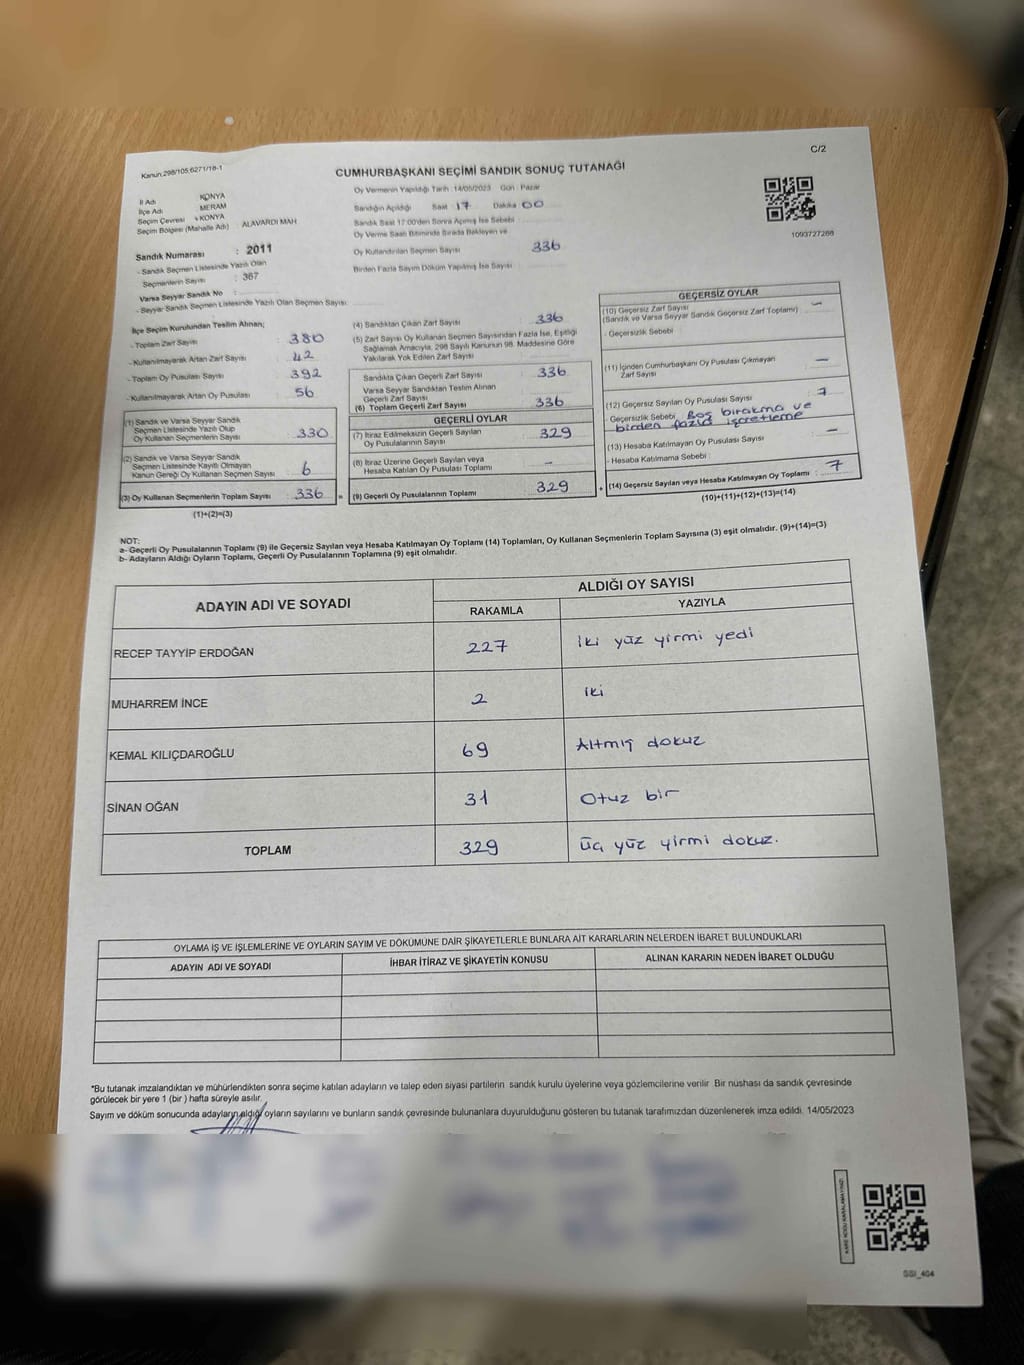 C/2
Kanun.298/105.6271/18-1
CUMHURBAŞKANI SEÇİMİ SANDIK SONUÇ TUTANAĞI
İl Adı KONYA
İlçe Adı MERAM
Seçim Çevresi KONYA
Seçim Bölgesi (Mahalle Adı) ALAVARDI MAH
Sandık Numarası : 2011
- Sandık Seçmen Listesinde Yazılı Olan
Seçmenlerin Sayısı : 367
Varsa Seyyar Sandık No :
- Seyyar Sandık Seçmen Listesinde Yazılı Olan Seçmen Sayısı:
Oy Vermenin Yapıldığı Tarih : 14/05/2023 Gün : Pazar
Sandığın Açıldığı Saat 17 Dakika 00
Sandık Saat 17:00'den Sonra Açılmış İse Sebebi :
Oy Verme Saati Bitiminde Sırada Bekleyen ve
Oy Kullandırılan Seçmen Sayısı 336
Birden Fazla Sayım Döküm Yapılmış İse Sayısı :
1093727268
İlçe Seçim Kurulundan Teslim Alınan;
- Toplam Zarf Sayısı : 380
- Kullanılmayarak Artan Zarf Sayısı : 42
- Toplam Oy Pusulası Sayısı : 392
- Kullanılmayarak Artan Oy Pusulası : 56
(1) Sandık ve Varsa Seyyar Sandık
Seçmen Listesinde Yazılı Olup
Oy Kullanan Seçmenlerin Sayısı : 330
(2) Sandık ve Varsa Seyyar Sandık
Seçmen Listesinde Kayıtlı Olmayan
Kanun Gereği Oy Kullanan Seçmen Sayısı : 6
(3) Oy Kullanan Seçmenlerin Toplam Sayısı : 336 =
(1)+(2)=(3)
(4) Sandıktan Çıkan Zarf Sayısı : 336
(5) Zarf Sayısı Oy Kullanan Seçmen Sayısından Fazla İse, Eşitliği
Sağlamak Amacıyla, 298 Sayılı Kanunun 98. Maddesine Göre
Yakılarak Yok Edilen Zarf Sayısı :
Sandıkta Çıkan Geçerli Zarf Sayısı : 336
Varsa Seyyar Sandıktan Teslim Alınan
Geçerli Zarf Sayısı :
(6) Toplam Geçerli Zarf Sayısı : 336
GEÇERLİ OYLAR
(7) İtiraz Edilmeksizin Geçerli Sayılan
Oy Pusulalarının Sayısı : 329
(8) İtiraz Üzerine Geçerli Sayılan veya
Hesaba Katılan Oy Pusulası Toplamı : -
(9) Geçerli Oy Pusulalarının Toplamı : 329 +
GEÇERSİZ OYLAR
(10) Geçersiz Zarf Sayısı : -
(Sandık ve Varsa Seyyar Sandık Geçersiz Zarf Toplamı)
- Geçersizlik Sebebi :
(11) İçinden Cumhurbaşkanı Oy Pusulası Çıkmayan
Zarf Sayısı : -
(12) Geçersiz Sayılan Oy Pusulası Sayısı : 7
- Geçersizlik Sebebi : Boş bırakma ve
birden fazla işaretleme
(13) Hesaba Katılmayan Oy Pusulası Sayısı : -
- Hesaba Katılmama Sebebi :
(14) Geçersiz Sayılan veya Hesaba Katılmayan Oy Toplamı : 7
(10)+(11)+(12)+(13)=(14)
NOT:
a- Geçerli Oy Pusulalarının Toplamı (9) ile Geçersiz Sayılan veya Hesaba Katılmayan Oy Toplamı (14) Toplamları, Oy Kullanan Seçmenlerin Toplam Sayısına (3) eşit olmalıdır. (9)+(14)=(3)
b- Adayların Aldığı Oyların Toplamı, Geçerli Oy Pusulalarının Toplamına (9) eşit olmalıdır.
ADAYIN ADI VE SOYADI
ALDIĞI OY SAYISI
RAKAMLA YAZIYLA
RECEP TAYYİP ERDOĞAN 227 iki yüz yirmi yedi
MUHARREM İNCE 2 iki
KEMAL KILIÇDAROĞLU 69 Altmış dokuz
SİNAN OĞAN 31 Otuz bir
TOPLAM 329 üç yüz yirmi dokuz.
OYLAMA İŞ VE İŞLEMLERİNE VE OYLARIN SAYIM VE DÖKÜMÜNE DAİR ŞİKAYETLERLE BUNLARA AİT KARARLARIN NELERDEN İBARET BULUNDUKLARI
ADAYIN ADI VE SOYADI İHBAR İTİRAZ VE ŞİKAYETİN KONUSU ALINAN KARARIN NEDEN İBARET OLDUĞU
*Bu tutanak imzalandıktan ve mühürlendikten sonra seçime katılan adayların ve talep eden siyasi partilerin sandık kurulu üyelerine veya gözlemcilerine verilir. Bir nüshası da sandık çevresinde
görülecek bir yere 1 (bir ) hafta süreyle asılır.
Sayım ve döküm sonucunda adayların aldığı oyların sayılarını ve bunların sandık çevresinde bulunanlara duyurulduğunu gösteren bu tutanak tarafımızdan düzenlenerek imza edildi. 14/05/2023
KARE KODU KARALAMAYINIZ!